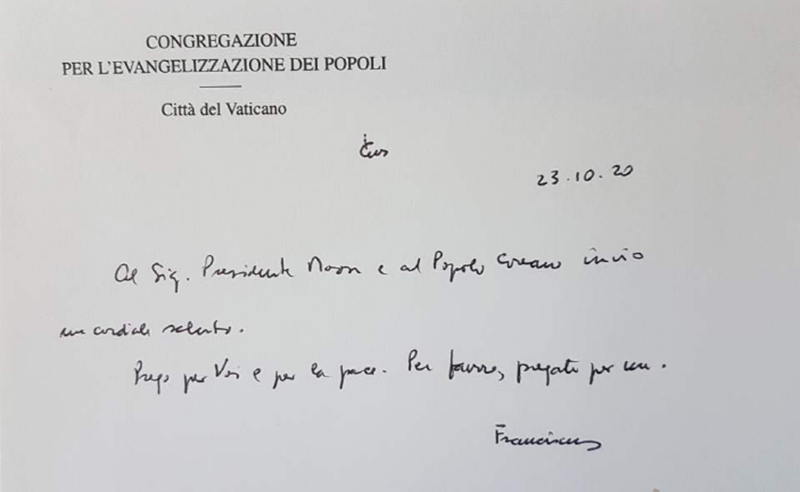 CONGREGAZIONE
PER L'EVANGELIZZAZIONE DEI POPOLI
Città del Vaticano
23.10.20
Al Sig. Presidente Moon e al Popolo coreano invio
un cordiale saluto.
Prego per Voi e per la pace. Per favore, pregate per me.
Franciscus